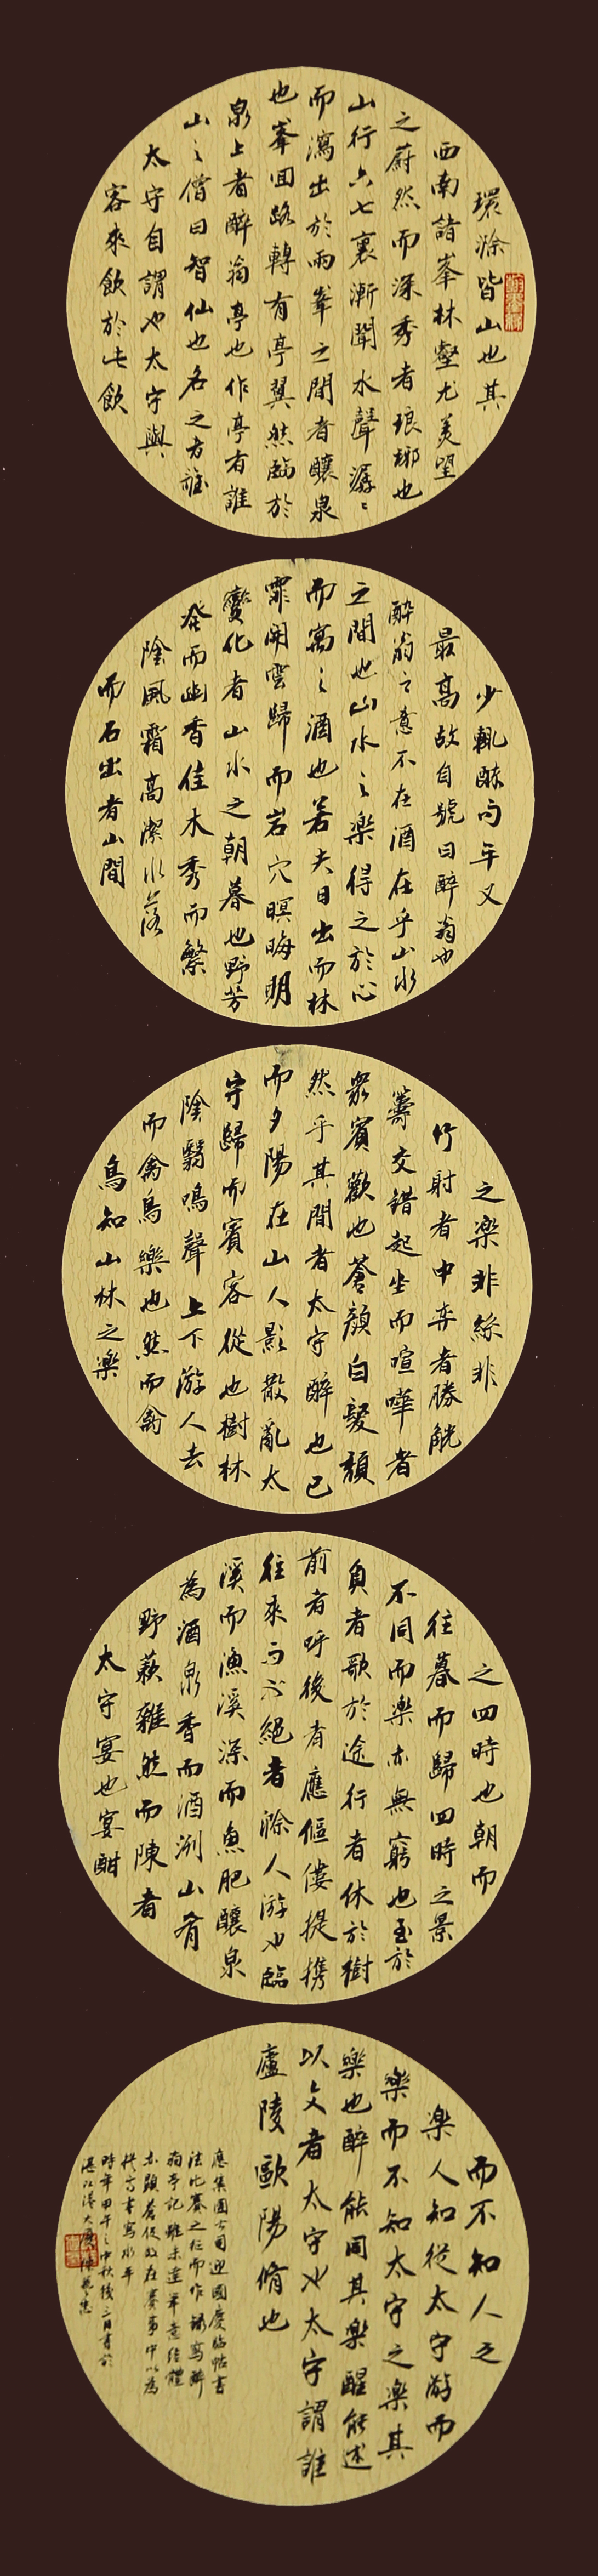 環滁皆山也其
西南諸峯林壑尤美望
之蔚然而深秀者琅琊也
山行六七裏漸聞水聲潺〻
而瀉出於兩峯之間者釀泉
也峯回路轉有亭翼然臨於
泉上者醉翁亭也作亭者誰
山之僧曰智仙也名之者誰
太守自謂也太守與
客來飲於此飲
少輒醉而年又
最高故自號曰醉翁也
醉翁之意不在酒在乎山水
之間也山水之樂得之於心
而寓之酒也若夫日出而林
霏開雲歸而岩穴暝晦明
變化者山水之朝暮也野芳
發而幽香佳木秀而繁
陰風霜高潔水落
而石出者山間
之樂非絲非
竹射者中弈者勝觥
籌交錯起坐而喧嘩者
衆賓歡也蒼顏白髮頹
然乎其間者太守醉也已
而夕陽在山人影散亂太
守歸而賓客從也樹林
陰翳鳴聲上下游人去
而禽鳥樂也然而禽
鳥知山林之樂
之四時也朝而
往暮而歸四時之景
不同而樂亦無窮也至於
負者歌於途行者休於樹
前者呼後者應傴僂提攜
往來而不絕者滁人游也臨
溪而漁溪深而魚肥釀泉
為酒泉香而酒洌山肴
野蔌雜然而陳者
太守宴也宴酣
而不知人之
樂人知從太守游而
樂而不知太守之樂其
樂也醉能同其樂醒能述
以文者太守也太守謂誰
廬陵歐陽脩也
應集團公司迎國慶臨帖書
法比賽之征而作錄寫醉
翁亭記雖未達筆意結體
亦顯蒼促故在賽事中以為
書寫水平
時年甲午之中秋後三日書於
湛江港大廈